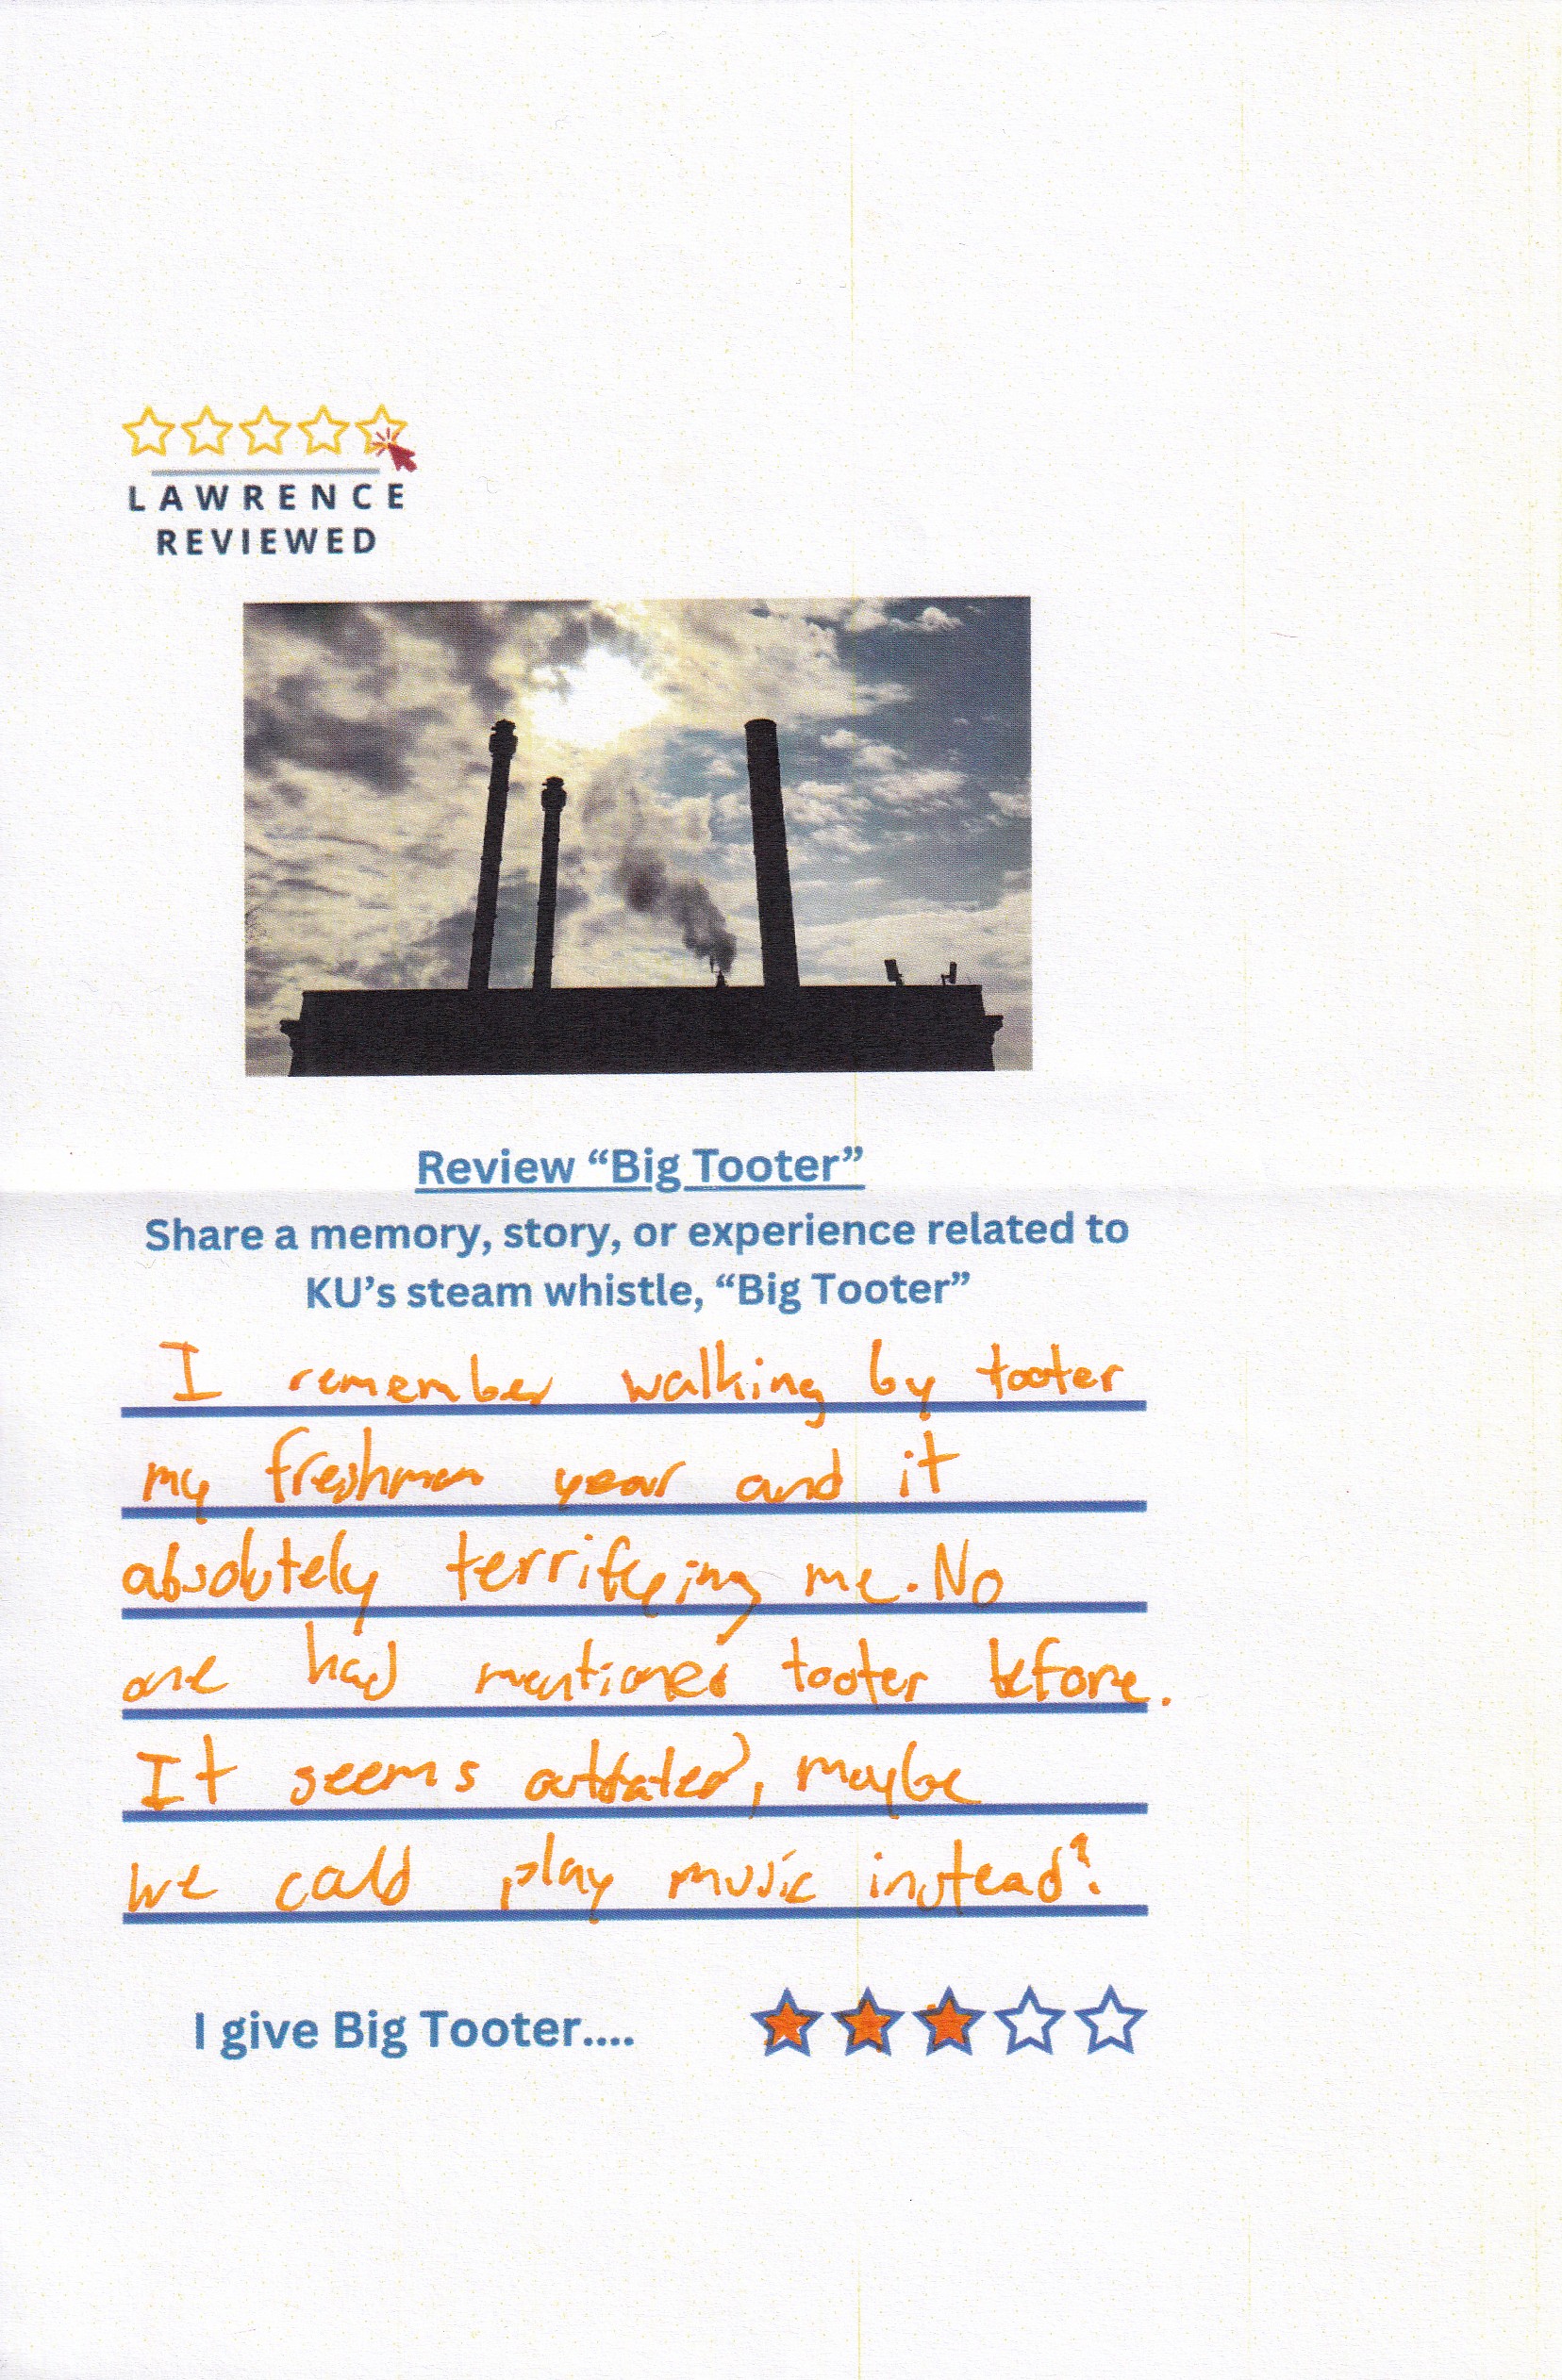 LAWRENCE
REVIEWED
Review “Big Tooter”
Share a memory, story, or experience related to
KU’s steam whistle, “Big Tooter”
I remember walking by tooter
my freshman year and it
absolutely terrifying me. No
one had mentioned tooter before.
It seems outdated, maybe
we could play music instead?
I give Big Tooter....